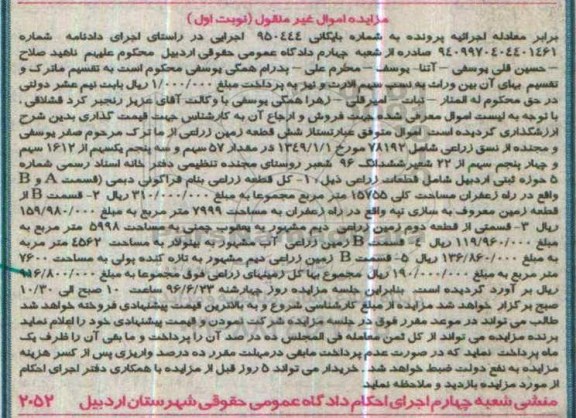 مزایده اموال غیر منقول (نوبت اول)
برابر معادله اجرائیه پرونده به شماره بایگانی ۹۵۰۴۴۴ اجرایی در راستای اجرای دادنامه شماره
۹۴۰۹۹۷۰۴۰۴۴۰۱۴۶۱ صادره از شعبه چهارم دادگاه عمومی حقوقی اردبیل محکوم علیهم ناهید صلاح
– حسین قلی یوسفی – آتنا – یوسف – محرم علی – پدرام همگی یوسفی محکوم است به تقسیم ماترک و
تقسیم بهای آن بین وراث به نسب سهم الارث و نیز به پرداخت مبلغ ۱/۰۰۰/۰۰۰ ریال بابت نیم عشر دولتی
در حق محکوم له الممتاز – نبات – امیرقلی – زهرا همگی یوسفی با وکالت آقای عزیز رنجبر کرد قشلاقی.
با توجه به لیست اموال معرفی شده جهت فروش و ارجاع آن به کارشناس جهت قیمت گذاری بدین شرح
ارزشگذاری گردیده است: اموال متوفی عبارتستاز شش قطعه زمین زراعی از ما ترک مرحوم صفر یوسفی
و مجنده از نسق زراعی شامل ۷۸۱۹۲ مورخ ۱۳۴۹/۱/۱ در مقدار ۵۷ سهم و سه پنجم یکسهم از ۱۶۱۲ سهم
و چهار پنجم سهم از ۲۲ شعیرششدانگ ۹۶ شعیر روستای مجنده تنظیمی دفتر خانه اسناد رسمی شماره
۵ حوزه ثبتی اردبیل شامل قطعات زراعی ذیل ۱۰- کل قطعه زراعی بنام قراگونی دیمی (قسمت A و B
واقع در راه زعفران مساحت کلی ۱۵۷۵۵ متر مربع مجموعا به مبلغ ۳۱۰/۰۰۰/۰۰۰ ریال ۲- قسمت B از
قطعه زمین معروف به سازی تپه واقع در راه زعفران به مساحت ۷۹۹۹ متر مربع به مبلغ ۱۵۹/۹۸۰/۰۰۰
ریال ۳- قسمتی از قطعه دوم زمین زراعی دیم مشهور به یعقوب چمنی به مساحت ۵۹۹۸ متر مربع به
مبلغ ۱۱۹/۹۶۰/۰۰۰ ریال ۴- قسمت B زمین زراعی آب مشهور به بینولار به مساحت ۴۵۶۲ متر مربه
به مبلغ ۱۳۶/۸۶۰/۰۰۰ ریال ۵- قسمت B زمین زراعی دیم مشهور به تازه کنده یولی به مساحت ۷۶۰۰
متر مربع به مبلغ ۱۹۰/۰۰۰/۰۰۰ ریال مجموع بها کل زمینهای زراعی فوق مجموعا به مبلغ ۹۱۶/۸۰۰/۰۰۰
ریال بر آورد گردیده است. بنابراین جلسه مزایده روز چهارشنبه ۹۶/۶/۲۲ ساعت ۱۰ صبح الی ۱۰/۳۰
صبح برگزار خواهد شد مزایده از مبلغ کارشناسی شروع و به بالاترین قیمت پیشنهادی فروخته خواهد شد
طالب می تواند در موعد مقرر فوق در جلسه مزایده شرکت نمودن و قیمت پیشنهادی خود را اعلام نماید
برنده مزایده می تواند از کل ثمن معامله فی المجلس ده در صد آن را پرداخت و ما بقی آن را ظرف یک
ماه پرداخت نماید که در صورت عدم پرداخت مابقی درمهلت مقرر ده درصد واریزی پس از کسر هزینه
مزایده به نفع دولت ضبط خواهد شد. خریدار می تواند ۵ روز قبل از مزایده با همکاری دفتر اجرای احکام
از مورد مزایده بازدید و ملاحظه نماید
منشی شعبه چهارم اجرای احکام دادگاه عمومی حقوقی شهرستان اردبیل ۲۰۵۲